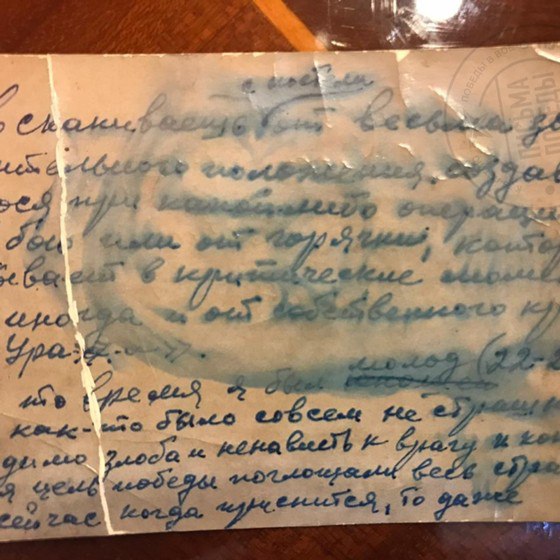 с постели
вскакиваешь от весьма зв
ительного положения, создав
ося при какой-либо операц
бою или от горячки, котор
бывает в критические моме
иногда и от собственного кр
Ура-а-а-а.
то время я был молод (22-
как-то было совсем не страшн
димо злоба и ненависть к врагу и ко
я цель победы поглощали весь стра
сейчас когда приснится, то даже